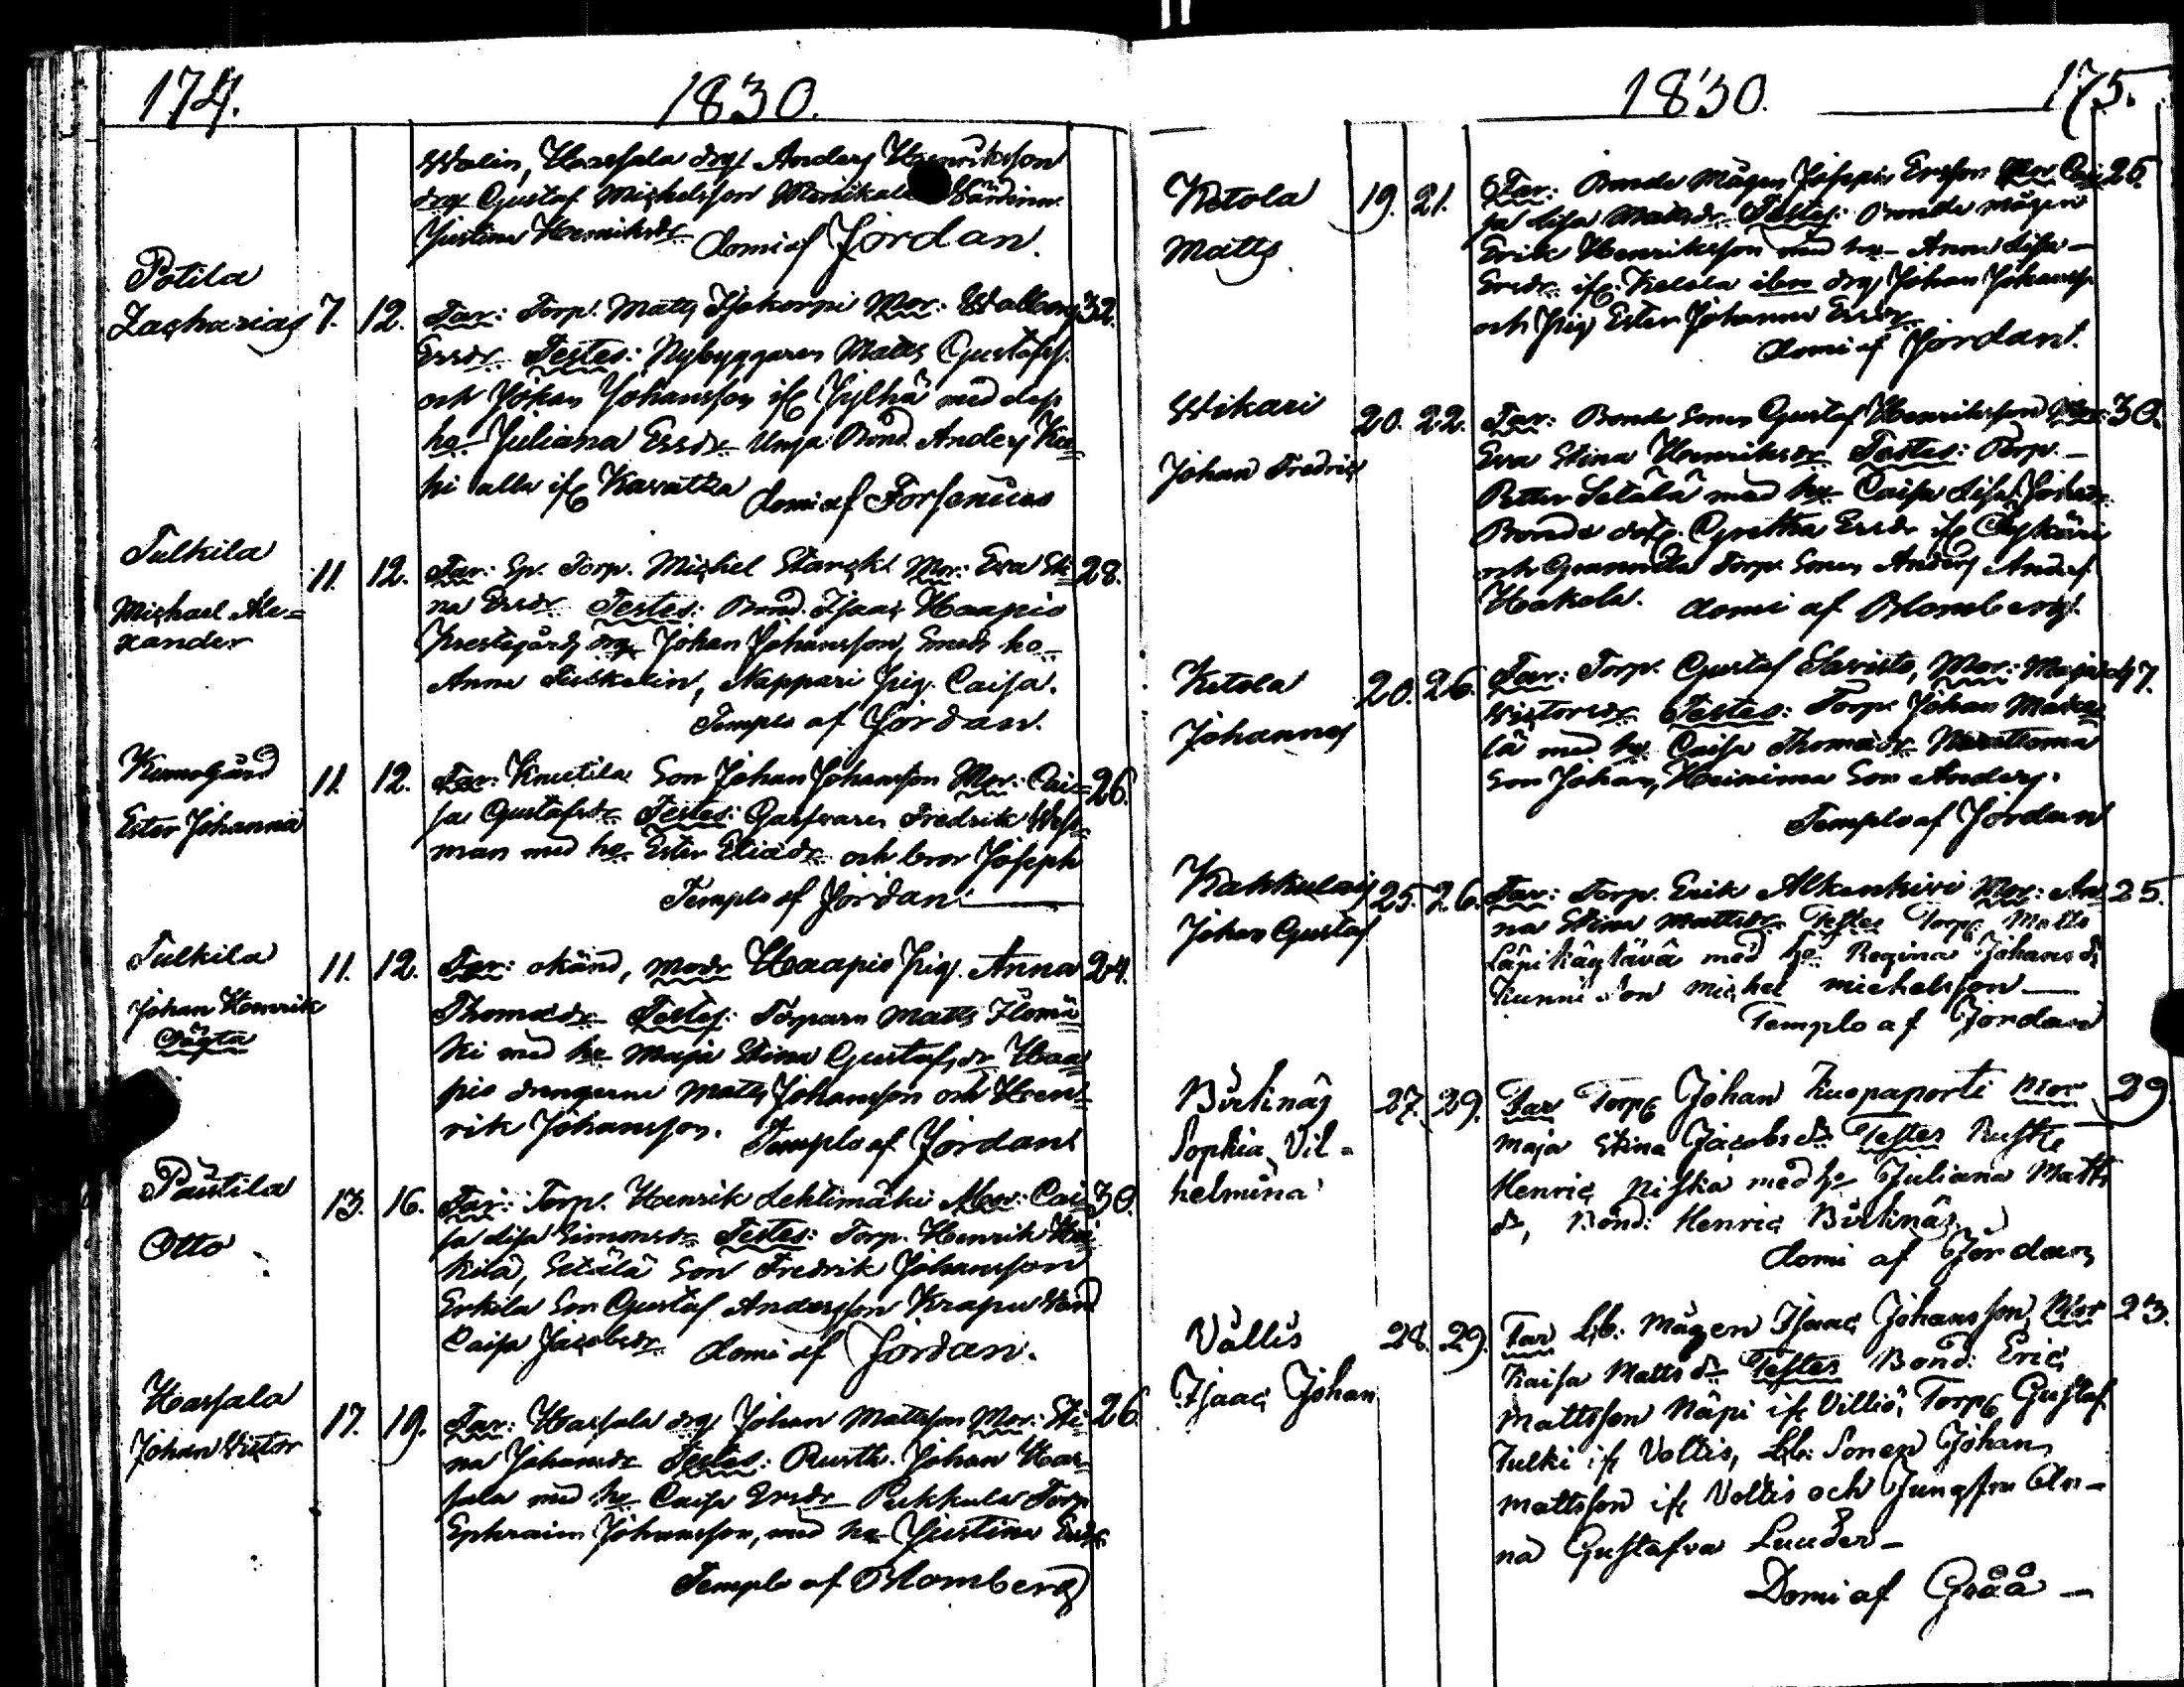 174.
1830.
Walin, Harsala drg Anders Henriksson
drg Gustaf Michelsson
Justina Henriksdr domi af Jordan.
Potila
Zacharias 7. 12. Far: Torp. Matts Mor: Walborg 32.
Ersdr Testes: Nybyggaren Matts Gustafss.
och Johan Johansson ifr Jylhä med dess
ho Juliana Ersdr Unga Bond. Anders Ka=
hi alla ifr Karatka domi af Forsenius
Tulkila
Michael Ale=
xander
11. 12. Far: Sp. Torp. Michel Starck Mor: Eva Sti= 28.
na Ersdr Testes: Bond. Isaac Haapio
Prestegårds drg Johan Johansson, Smeds ho
Anna, Nappari pig. Caisa.
Templo af Jordan.
Kumogård
Ester Johanna
11. 12. Far: Knutila Son Johan Johansson Mor: Cai= 26.
sa Gustafsdr Testes: Garfvaren Fredrik Wess=
man med ho Ester Eliädr och bror Joseph
Templo af Jordan
Tulkila
Johan Henrik
Oägta
11. 12. Far: okänd, modr Haapio pig. Anna 24.
Thomasdr Testes: Torparn Matts Ilomä=
ki med ho Maja Stina Gustafsdr Haa=
pio drengarne Matts Johansson och Hen=
rik Johansson. Templo af Jordan
Pautila
Otto
13. 16. Far: Torp. Henrik Lehtimäki Mor: Cai= 30.
sa Lisa Simonsdr Testes: Torp. Henrik Hei=
kilä, Setälä Son Fredrik Johansson
Erkila Son Gustaf Andersson Krapu
Caisa Jacobsdr domi af Jordan.
Harsala
Johan Victor
17. 19. Far: Harsala drg Johan Mattsson Mor: Sti= 26
na Johansdr Testes: Rusth. Johan Har=
sala med ho Caisa Ersdr Pukkula Torp
Ephraim Johansson, med ho Justina Ersdr
Templo af Blomberg
1830.
175.
Ketola
Matts
19. 21. Far: Bonde Mågen Josephs Ersson Mor Cai= 25.
sa Lisa Mattsdr Testes: Bonde mågen
Erik Henriksson med ho Anna Lisa
Ersdr ifr Ketola iben drg Johan Johanss.
och pig Ester Johanna Ersdr
domi af Jordan
Wikari
Johan Fredric
20. 22. Far: Bonde Sonen Gustaf Henriksson Mor: 30.
Eva Stina Henriksdr Testes: Torp.
Petter Setälä med ho Caisa Lisa
Bonde dotr Gretha Ersdr ifr
och Torp Sonen Anders Anders
Hakola. domi af Blomberg
Ketola
Johannes
20. 26. Far: Torp. Gustaf Saristo, Mor: Maja 47.
Victorsdr Testes: Torp. Johan Mäke=
lä med ho Caisa Thomasdr
Son Johan, Heinima Son Anders.
Templo af Jordan
Kakkulais
Johan Gustaf
25. 26. Far: Torp. Erik Alkenkivi Mor: An= 25.
na Stina Mattsdr Testes Torp Matts
Läpikäytävä med ho Regina Johansdr
Kunni Son Michel Michelsson
Templo af Jordan
Birkinäs
Sophia Vil=
helmina
27. 29. Far Torp Johan Kuopaporti Mor 29
Maja Stina Jacobsdr Testes Rusth
Henric Niska med ho Juliana Matts
dr, Bond: Henric Birkinäs
domi af Jordan
Vallis
Isaac Johan
28. 29. Far Lb: Mågen Isaac Johansson, Mor 23.
Kaisa Mattsdr Testes Bond: Eric
Mattsson Näpi ifr Villiö, Torp Gustaf
Tulki ifr Voltis, Lb: Sonen Johan
Mattsson ifr Voltis och Jungfru An-
na Gustafva Lunden
Domi af Gråå